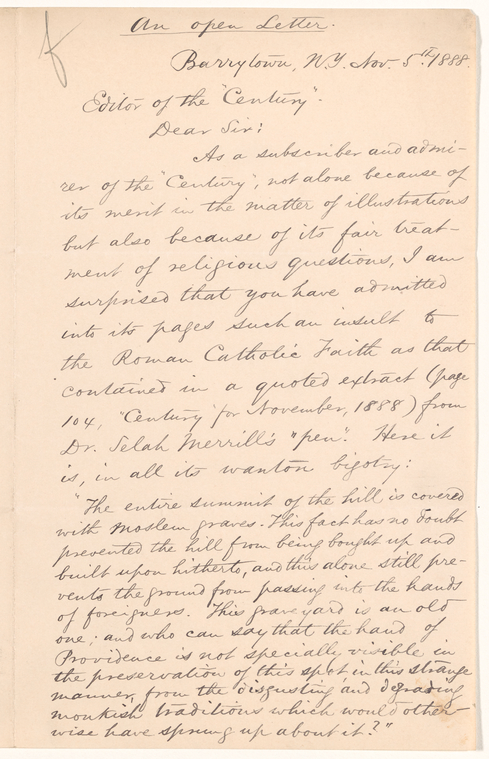 An open Letter.
Barrytown, N.Y. Nov. 5th. 1888.
Editor of the "Century".
Dear Sir:
As a subscriber and admi-
rer of the "Century", not alone because of
its merit in the matter of illustrations
but also because of its fair treat-
ment of religious questions, I am
surprised that you have admitted
into its pages such an insult to
the Roman Catholic Faith as that
contained in a quoted extract (page
104, "Century" for November, 1888) from
Dr. Selah Merrill's "pen". Here it
is, in all its wanton bigotry:
"The entire summit of the hill is covered
with Moslem graves. This fact has no doubt
prevented the hill from being bought up and
built upon hitherto, and this alone still pre-
vents the ground from passing into the hands
of foreigners. This graveyard is an old
one; and who can say that the hand of
Providence is not specially visible in
the preservation of this spot in this strange
manner, from the disgusting and degrading
monkish traditions which would other-
wise have sprung up about it?"